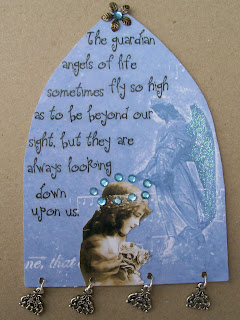 The guardian
angels of life
sometimes fly so high
as to be beyond our
sight, but they are
always looking
down
upon us.
ne, that